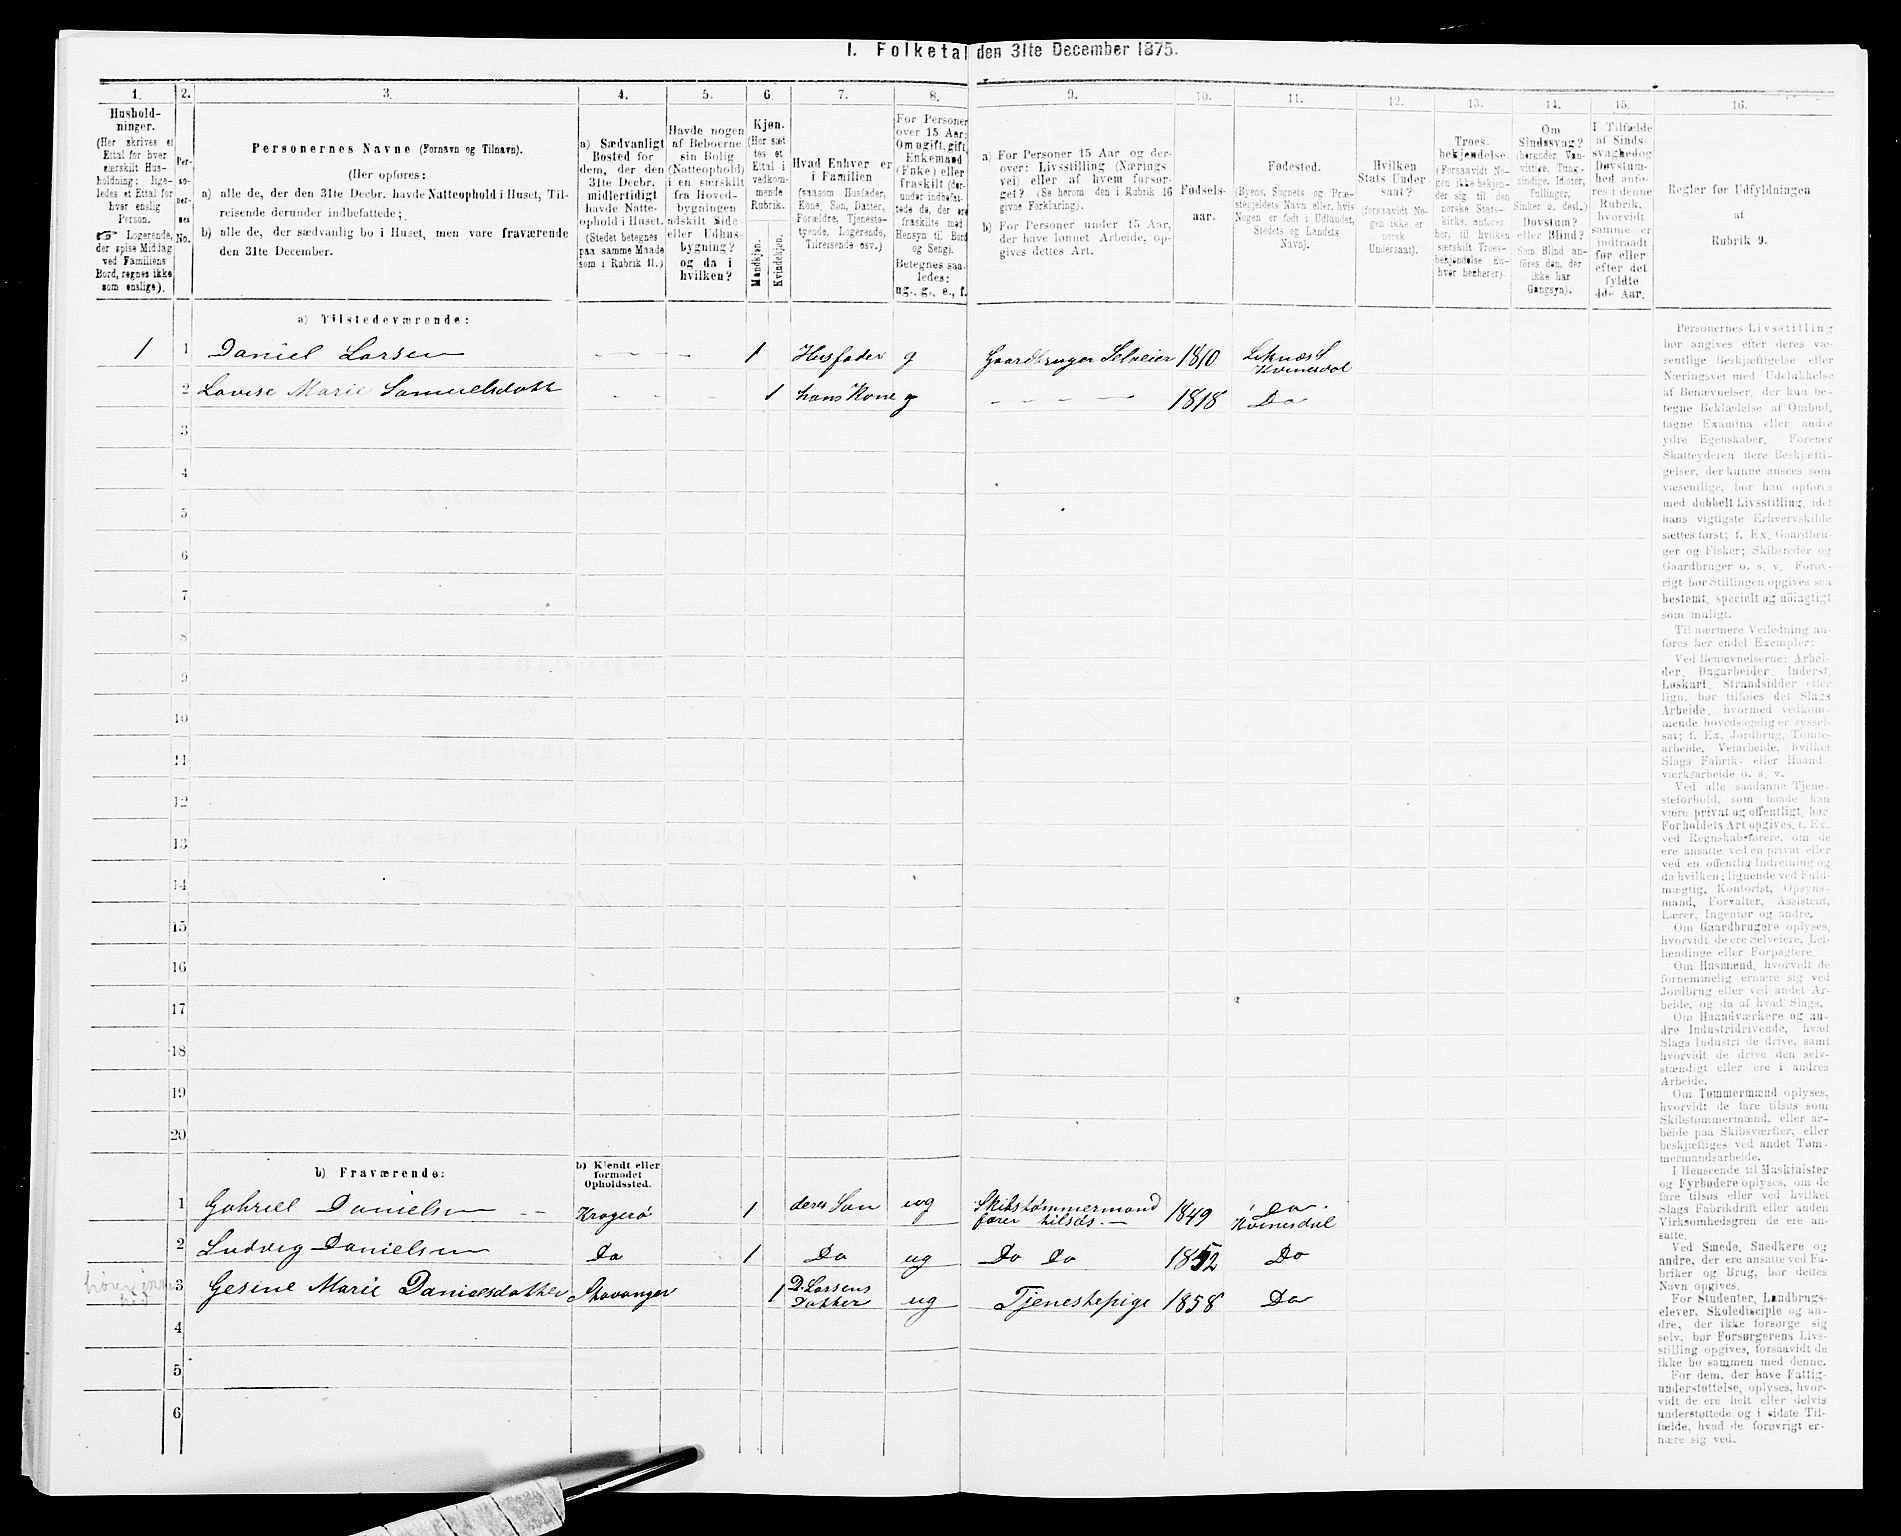 I. Folketal den 31te December 1875.
1. 2. 3. 4. 5. 6. 7. 8. 9. 10. 11. 12. 13. 14. 15. 16.
Hushold-
ninger.
(Her skrives et
Ettal for hver
særskilt Hus-
holdning; lige-
ledes et Ettal for
hver enslig
Person.
☞ Logerende,
der spise Middag
ved Familiens
Bord, regnes ikke
som enslige).
Per-
so-
ner-
nes
No.
Personernes Navne (Fornavn og Tilnavn).
(Her opføres:
a) alle de, der den 31te Decbr. havde Natteophold i Huset, Til-
reisende derunder indbefattede;
b) alle de, der sædvanlig bo i Huset, men vare fraværende
den 31te December.
a) Sædvanligt
Bosted for
dem, der den
31te Decbr.
midlertidigt
havde Natte-
ophold i Huset.
(Stedet betegnes
paa samme Maade
som i Rubrik 11.)
Havde nogen
af Beboerne
sin Bolig
(Natteophold)
i en særskilt
fra Hoved-
bygningen
adskilt Side
eller Udhus-
bygning?
og da i
hvilken?
Kjøn.
(Her sæt
tes et
Ettal i
vedkom-
mende
Rubrik.
Mandkjøn.
Kvindekjøn.
Hvad Enhver er
i Familien
(saasom Husfader,
Kone, Søn, Datter,
Forældre, Tjenestе-
tyende, Logerende,
Tilreisende osv.)
For Personer
over 15 Aar:
Om ugift, gift,
Enkemand
(Enke) eller
fraskilt (der-
under indbefat-
tede de, der ere
fraskilte med
Hensyn til Bord
og Seng).
Betegnes saa-
ledes:
ug., g., e., f.
a) For Personer 15 Aar og der-
over: Livsstilling (Nærings
vei) eller af hvem forsør-
get? (Se herom den i Rubrik 16
givne Forklaring).
b) For Personer under 15 Aar,
der have lønnet Arbeide, op-
gives dettes Art.
Fødsels-
aar.
Fødested.
(Byens, Sognets og Præ-
stegjeldets Navn eller, hvis
Nogen er født i Udlandet,
Stedets og Landets
Navn).
Hvilken
Stats Under
saat?
(forsaavidt No-
gen ikke er
norsk
Undersaat).
Troes-
bekjendelse.
(Forsaavidt No-
gen ikke bekjen-
der sig til den
norske Stats-
kirke, anføres
her, til hvilken
særskilt Troes-
bekjendelse En-
hver henhører).
Om
Sindssvag?
(herunder Van-
vittige, Tung-
sindige, Idioter,
Tullinger,
Sinker o. desl.)
Døvstum?
eller Blind?
Som Blind an-
føres den, der
ikke har
Gangsyn).
I Tilfælde
af Sinds-
svaghed og
Døvstum-
hed anfø-
res i denne
Rubrik,
hvorvidt
samme er
indtraadt
før eller
efter det
fyldte
4de Aar.
Regler for Udfyldningen
af
Rubrik 9.
a) Tilstedeværende:
1 1 Daniel Larsen — — — 1 Husfader g Gaardbruger Selveier 1810 Leknæs S Kvinesdal
2 Lovise Marie Samuelsdatt - - - 1 hans Kone g — — — — 1818 Do
3
4
5
6
7
8
9
10
11
12
13
14
15
16
17
18
19
20
b) Fraværende:
b) Kjendt eller
formodet
Opholdssted.
1 Gabriel Danielsen Kragerø 1 deres Søn ug Skibstømmermand farer tilsøs 1849 Do Kvinesdal
2 Ludvig Danielsen Do 1 Do ug Do Do 1852 Do
3 Gesine Marie Danielsdatter Stavanger 1 D. Larsens Datter ug Tjenestepige 1858 Do
4
5
6
Personernes Livsstilling
bør angives efter deres væ-
sentlige Beskjæftigelse eller
Næringsvei med Udelukkelse
af Benævnelser, der kun be-
tegne Beklædelse af Ombud,
tagne Examina eller andre
ydre Egenskaber. Forener
Skatteyderen flere Beskjæfti-
gelser, der kunne ansees som
væsentlige, bør han opføres
med dobbelt Livsstilling, idet
hans vigtigste Erhvervskilde
sættes først; f. Ex. Gaardbru-
ger og Fisker; Skibsreder og
Gaardbruger o. s. v. Forøv-
rigt bør Stillingen opgives saa
bestemt, specielt og nöiagtigt
som muligt.
Til nærmere Veiledning an-
føres her endel Exempler:
Ved Benævnelserne: Arbei-
der, Dagarbeider, Inderst,
Løskarl, Strandsidder eller
lign. bør tilføies det Slags
Arbeide, hvormed vedkom-
mende hovedsagelig er syssel-
sat; f. Ex. Jordbrug, Tømte-
arbeide, Veiarbeide, hvilket
Slags Fabrik- eller Haand-
værksarbeide o. s. v.
Ved alle saadanne Tjene-
steforhold, som baade kan
være privat og offentligt, bør
Forholdets Art opgives, f. Ex.
ved Regnskabsførere, om de
ere ansatte ved en privat eller
ved en offentlig Indretning og
da hvilken; lignende ved Fuld-
mægtig, Kontorist, Opsyns-
mand, Forvalter, Assistent,
Lærer, Ingeniør og andre.
Om Gaardbrugere oplyses,
hvorvidt de ere Selveiere, Lei-
lændinge eller Forpagtere.
Om Husmænd, hvorvidt de
fornemmelig ernære sig ved
Jordbrug eller ved andet Ar-
beide, og da af hvad Slags.
Om Haandværkere og an-
dre Industridrivende, hvad
Slags Industri de drive, samt
hvorvidt de drive den selv-
stændigt eller ere i andres
Arbeide.
Om Tømmermænd oplyses,
hvorvidt de fare tilsøs som
Skibstømmermænd, eller ar-
beide paa Skibsværfter, eller
beskjæftiges ved andet Tøm-
mermandsarbeide.
I Henseende til Maskinister
og Fyrbødere oplyses, om de
fare tilsøs eller ved hvilket
Slags Fabrikdrift eller anden
Virksomhedsgren de ere an-
satte.
Ved Smede, Snedkere og
andre, der ere ansatte ved Fa-
briker og Brug, bør dettes
Navn opgives.
For Studenter, Landbrugs-
elever, Skoledisciple og an-
dre, der ikke forsørge sig
selv, bør Forsørgerens Livs-
stilling opgives, forsaavidt de
ikke bo sammen med denne.
For dem, der have Fattig-
understøttelse, oplyses, hvor-
vidt de ere helt eller delvis
understøttede og i sidste Til-
fælde, hvad de forøvrigt er-
nære sig ved.